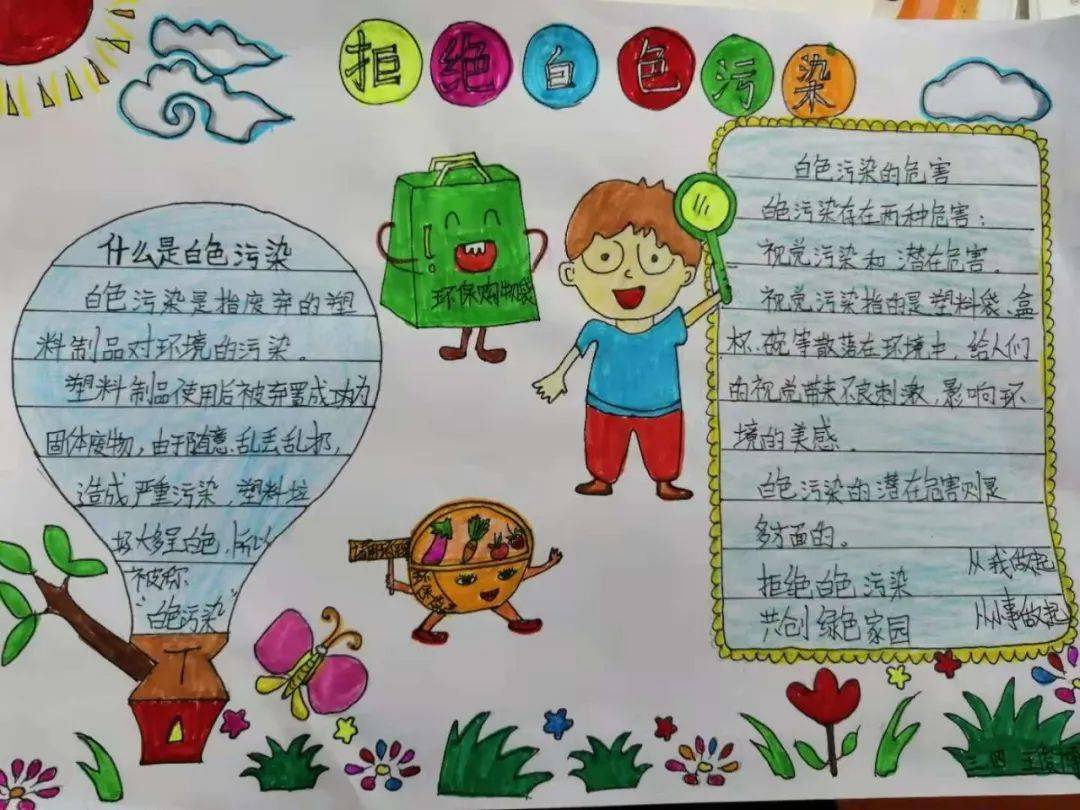 拒绝白色污染
什么是白色污染
白色污染是指废弃的塑
料制品对环境的污染。
塑料制品使用后被弃置成功为
固体废物，由于随意乱丢乱扔，
造成严重污染，塑料垃
圾大多呈白色，所以
被称
“白色污染”
环保购物袋
白色污染的危害
白色污染存在两种危害：
视觉污染和潜在危害。
视觉污染指的是塑料袋、盒
杯、碗等散落在环境中，给人们
的视觉带来不良刺激，影响环
境的美感。
白色污染的潜在危害则是
多方面的。
从我做起
拒绝白色污染
从小事做起
共创绿色家园
三.四 王